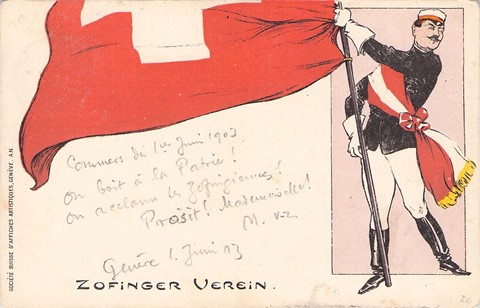 Commers du 1er Juin 1903
on boit à la Patrie!
on acclame les Zofingiennes!
Prosit! Mademoiselle!
M.
Genève 1. Juin 03
ZOFINGER VEREIN.
SOCIÉTÉ SUISSE D'AFFICHES ARTISTIQUES, GENÈVE. A.N.